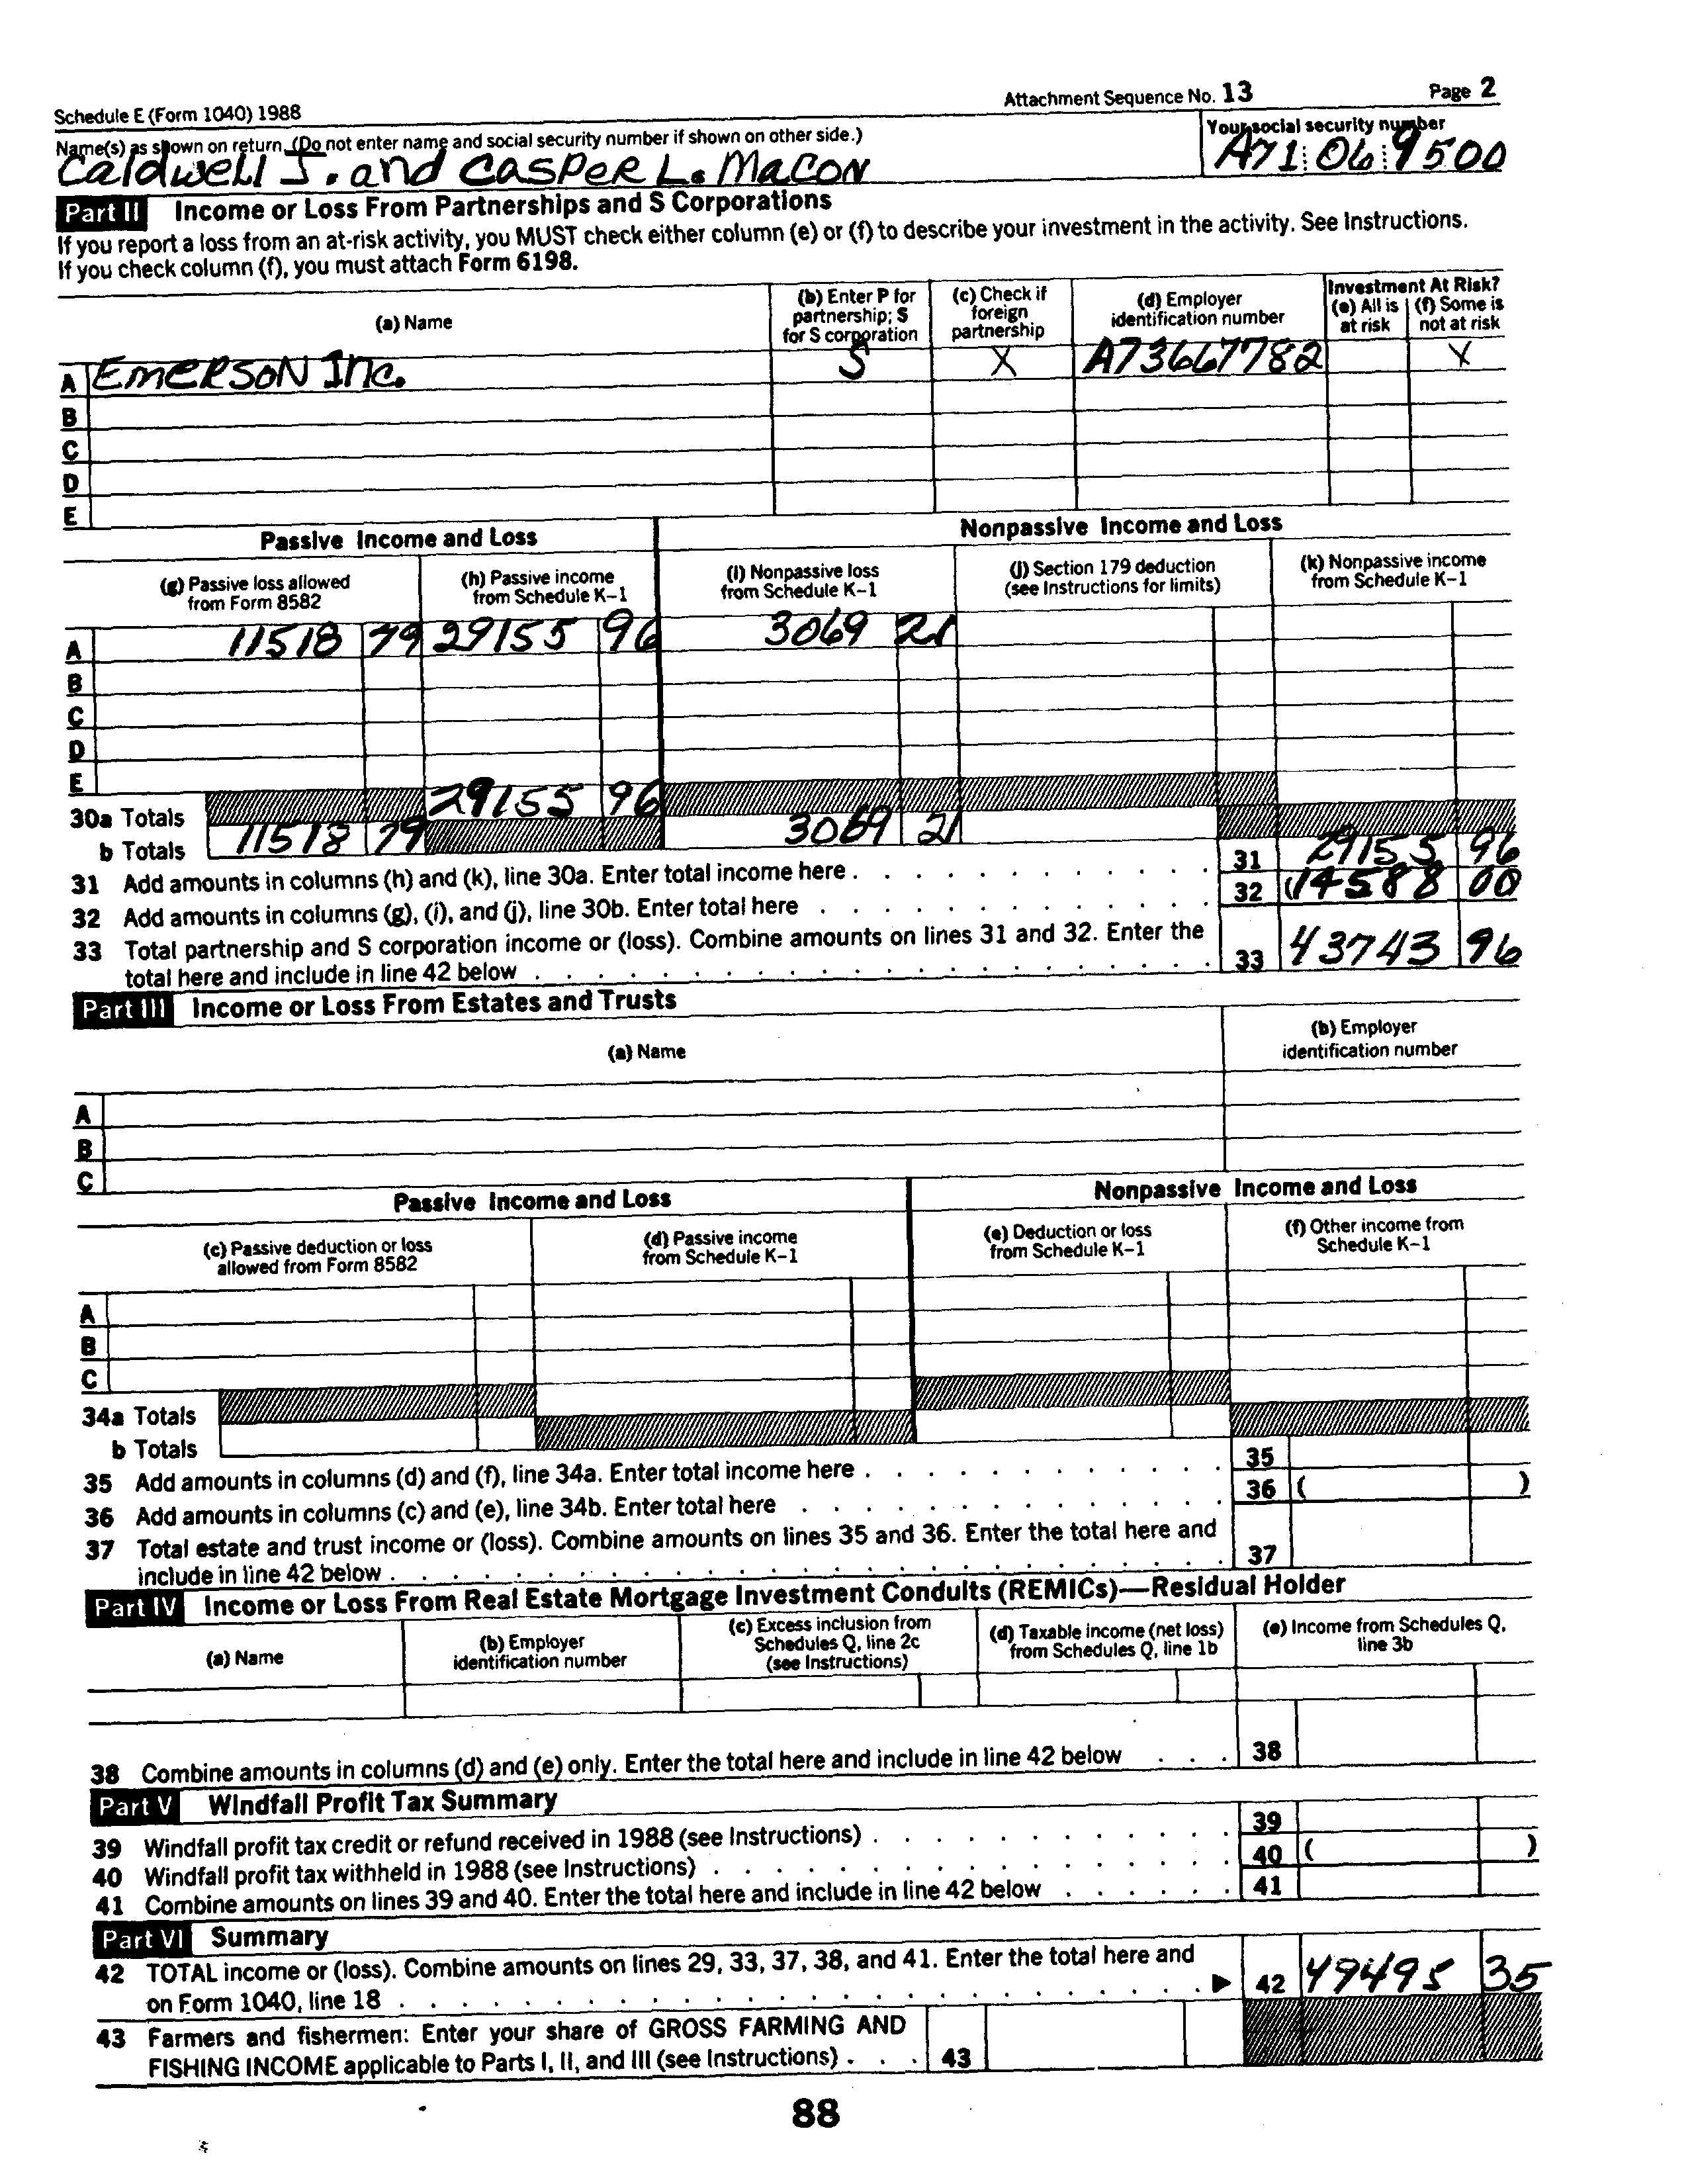 Schedule E (Form 1040) 1988 Attachment Sequence No. 13 Page 2
Name(s) as shown on return. (Do not enter name and social security number if shown on other side.) Your social security number
Caldwell J. and Casper L. Macon A71 06 9500
Part II Income or Loss From Partnerships and S Corporations
If you report a loss from an at-risk activity, you MUST check either column (e) or (f) to describe your investment in the activity. See Instructions.
If you check column (f), you must attach Form 6198.
(a) Name (b) Enter P for partnership; S for S corporation (c) Check if foreign partnership (d) Employer identification number Investment At Risk? (e) All is at risk (f) Some is not at risk
A Emerson Inc. S X A73667782 X
B
C
D
E
Passive Income and Loss Nonpassive Income and Loss
(g) Passive loss allowed from Form 8582 (h) Passive income from Schedule K–1 (i) Nonpassive loss from Schedule K–1 (j) Section 179 deduction (see Instructions for limits) (k) Nonpassive income from Schedule K–1
A 11518 79 29155 96 3069 21
B
C
D
E
30a Totals 29155 96
b Totals 11518 79 3069 21
31 Add amounts in columns (h) and (k), line 30a. Enter total income here . 31 29155 96
32 Add amounts in columns (g), (i), and (j), line 30b. Enter total here . 32 (14588 00
33 Total partnership and S corporation income or (loss). Combine amounts on lines 31 and 32. Enter the
total here and include in line 42 below . 33 43743 96
Part III Income or Loss From Estates and Trusts
(a) Name (b) Employer identification number
A
B
C
Passive Income and Loss Nonpassive Income and Loss
(c) Passive deduction or loss allowed from Form 8582 (d) Passive income from Schedule K–1 (e) Deduction or loss from Schedule K–1 (f) Other income from Schedule K–1
A
B
C
34a Totals
b Totals
35 Add amounts in columns (d) and (f), line 34a. Enter total income here . 35
36 Add amounts in columns (c) and (e), line 34b. Enter total here . 36 ( )
37 Total estate and trust income or (loss). Combine amounts on lines 35 and 36. Enter the total here and
include in line 42 below . 37
Part IV Income or Loss From Real Estate Mortgage Investment Conduits (REMICs)—Residual Holder
(a) Name (b) Employer identification number (c) Excess inclusion from Schedules Q, line 2c (see Instructions) (d) Taxable income (net loss) from Schedules Q, line 1b (e) Income from Schedules Q, line 3b
38 Combine amounts in columns (d) and (e) only. Enter the total here and include in line 42 below . . . 38
Part V Windfall Profit Tax Summary
39 Windfall profit tax credit or refund received in 1988 (see Instructions) . 39
40 Windfall profit tax withheld in 1988 (see Instructions) . 40 ( )
41 Combine amounts on lines 39 and 40. Enter the total here and include in line 42 below . 41
Part VI Summary
42 TOTAL income or (loss). Combine amounts on lines 29, 33, 37, 38, and 41. Enter the total here and
on Form 1040, line 18 . ▶ 42 49495 35
43 Farmers and fishermen: Enter your share of GROSS FARMING AND
FISHING INCOME applicable to Parts I, II, and III (see Instructions) . . . 43
88